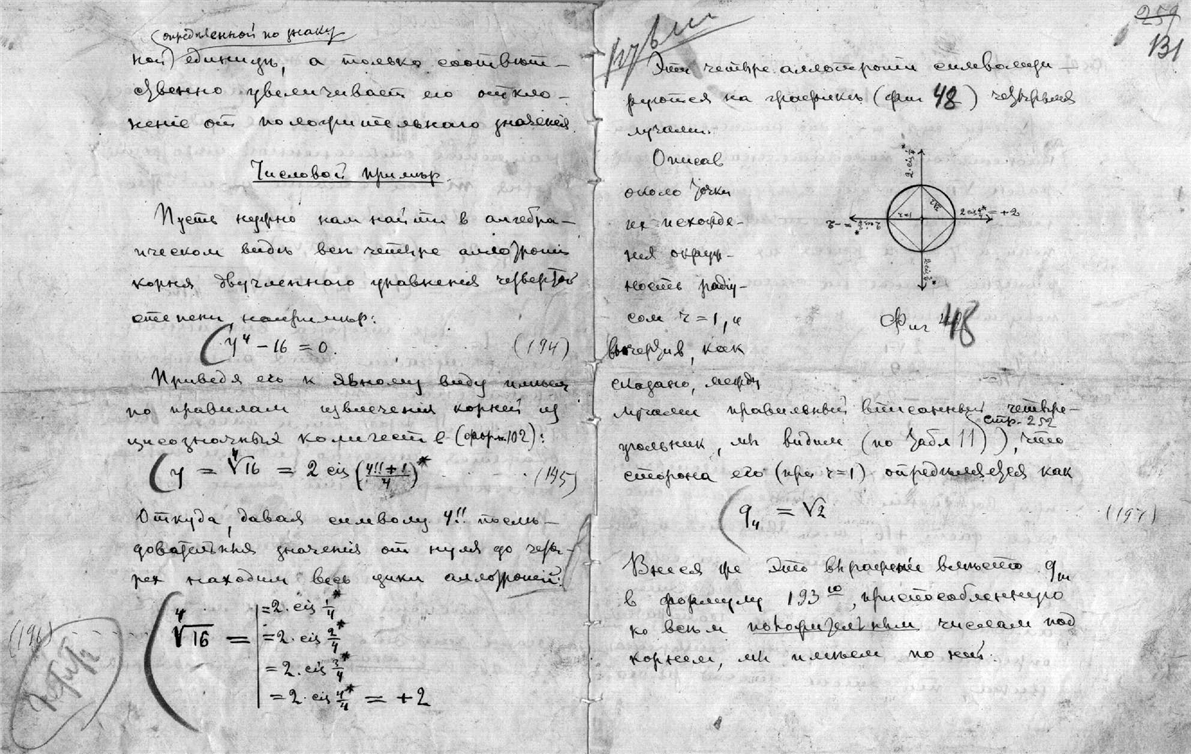 опредѣленной по знаку
ной единицы, а только соотвѣт-
ственно увеличивает его откло-
неніе от положительнаго значенія.
Числовой примѣр
Пусть нужно нам найти в алгебра-
ическом видѣ всѣ четыре аллотропіи
корня двучленного уравненія четвертой
степени, например:
y⁴ – 16 = 0. (194)
Приведя его к явному виду имѣем
по правилам извлечения корней из
цисозначных количеств (форм. 102):
y = ⁴√16 = 2 cis (4!! + 1 / 4)* (195)
Откуда, давая символу 4!! послѣ-
довательныя значенія от нуля до четы-
рех находим весь цикл аллотропій:
= 2. cis 1/4*
⁴√16 = = 2. cis 2/4*
= 2. cis 3/4*
= 2. cis 4/4* = +2
(196)
259
131
Эти четыре аллотропіи символизи-
руются на графикѣ (фиг 48) четырьмя
лучами.
Описав
около точки
их исхожде-
ния окруж-
ность радіу-
сом r = 1, и
вычертив, как
сказано, между
r=1
√2
= +2
Фиг 48
лучами правильный вписанный четыре-
стр. 252
угольник, мы видим (по табл 11), что
сторона его (при r=1) опредѣляется как
q₄ = √2 (197)
Внеся же это выраженіе вмѣсто qₘ
в формулу 193ю, приспособленную
ко всѣм положительным числам под
корнем, мы имѣем по ней: